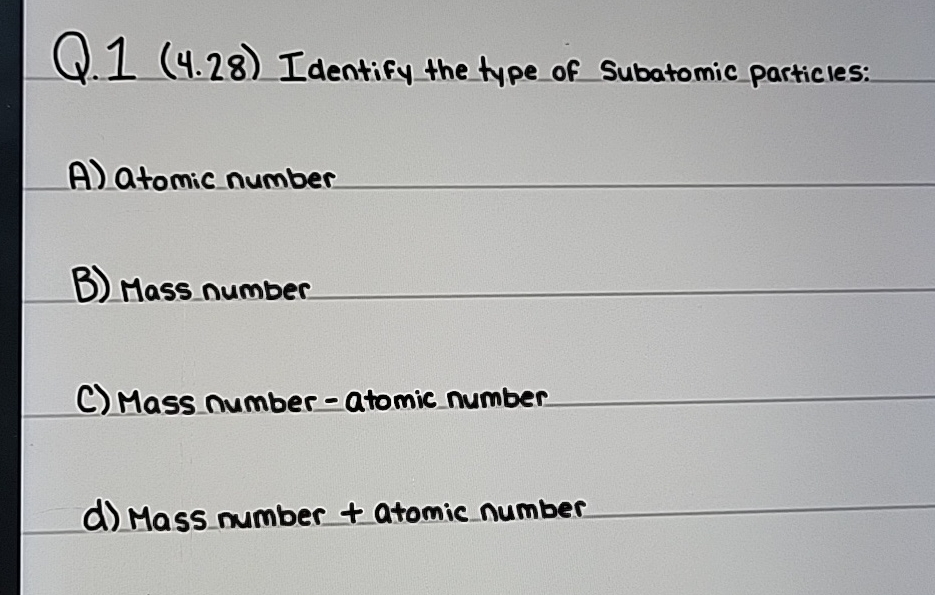 Q.1 (4.28) Identify the type of Subatomic particles:
A) atomic number
B) Mass number
C) Mass number - atomic number
d) Mass number + atomic number